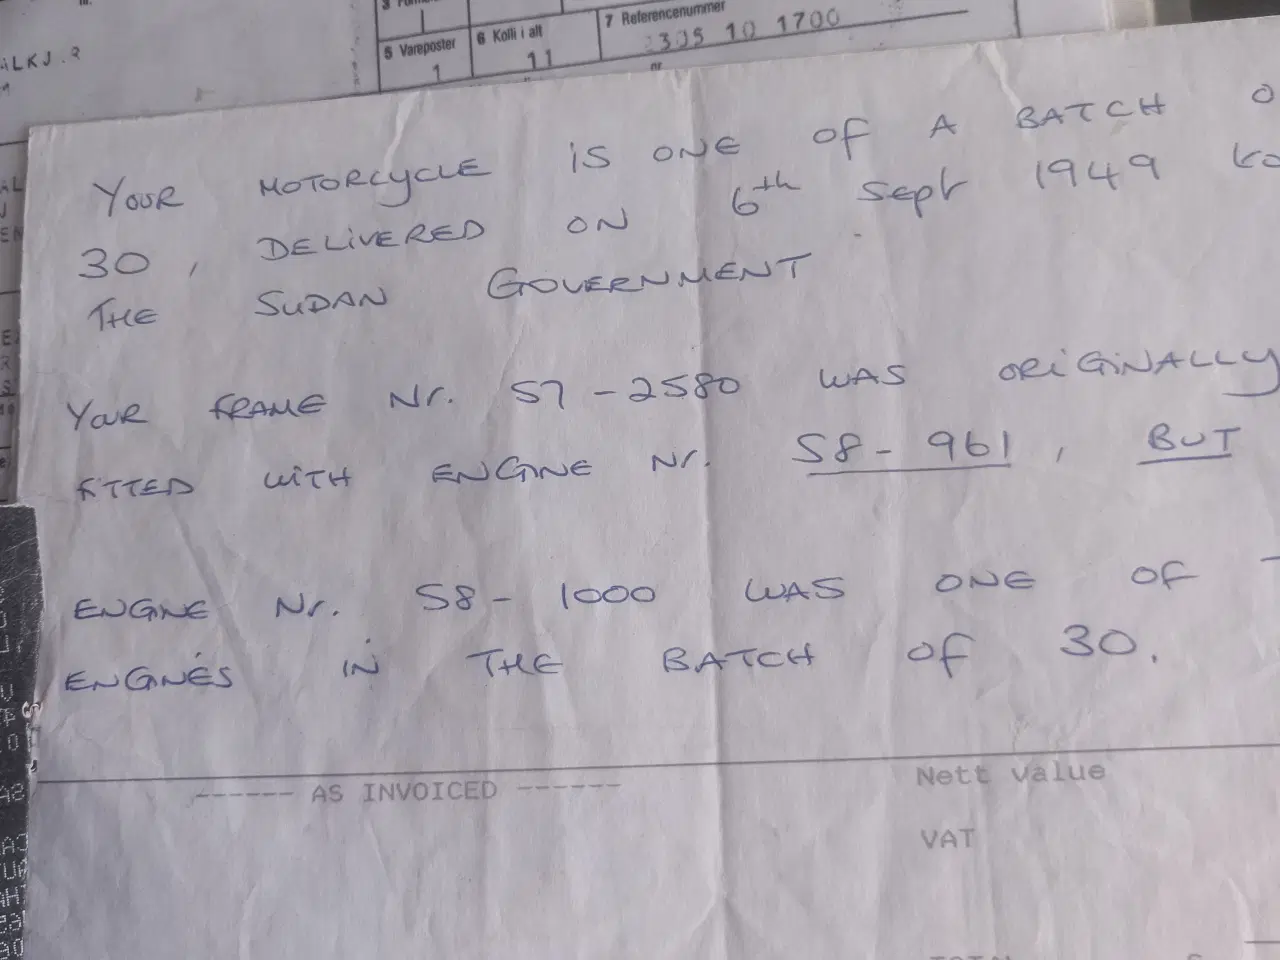 5 Vareposter
1
6 Kolli i alt
11
7 Referencenummer
2305 10 1700
ALKJ.2
YOUR MOTORCYCLE IS ONE OF A BATCH O
30, DELIVERED ON 6th Sept 1949 to
THE SUDAN GOVERNMENT
YOUR FRAME Nr. S7-2580 WAS ORIGINALLY
FITTED WITH ENGINE Nr. S8-961, BUT
ENGINE Nr. S8-1000 WAS ONE OF T
ENGINES IN THE BATCH OF 30.
------ AS INVOICED ------
Nett value
VAT